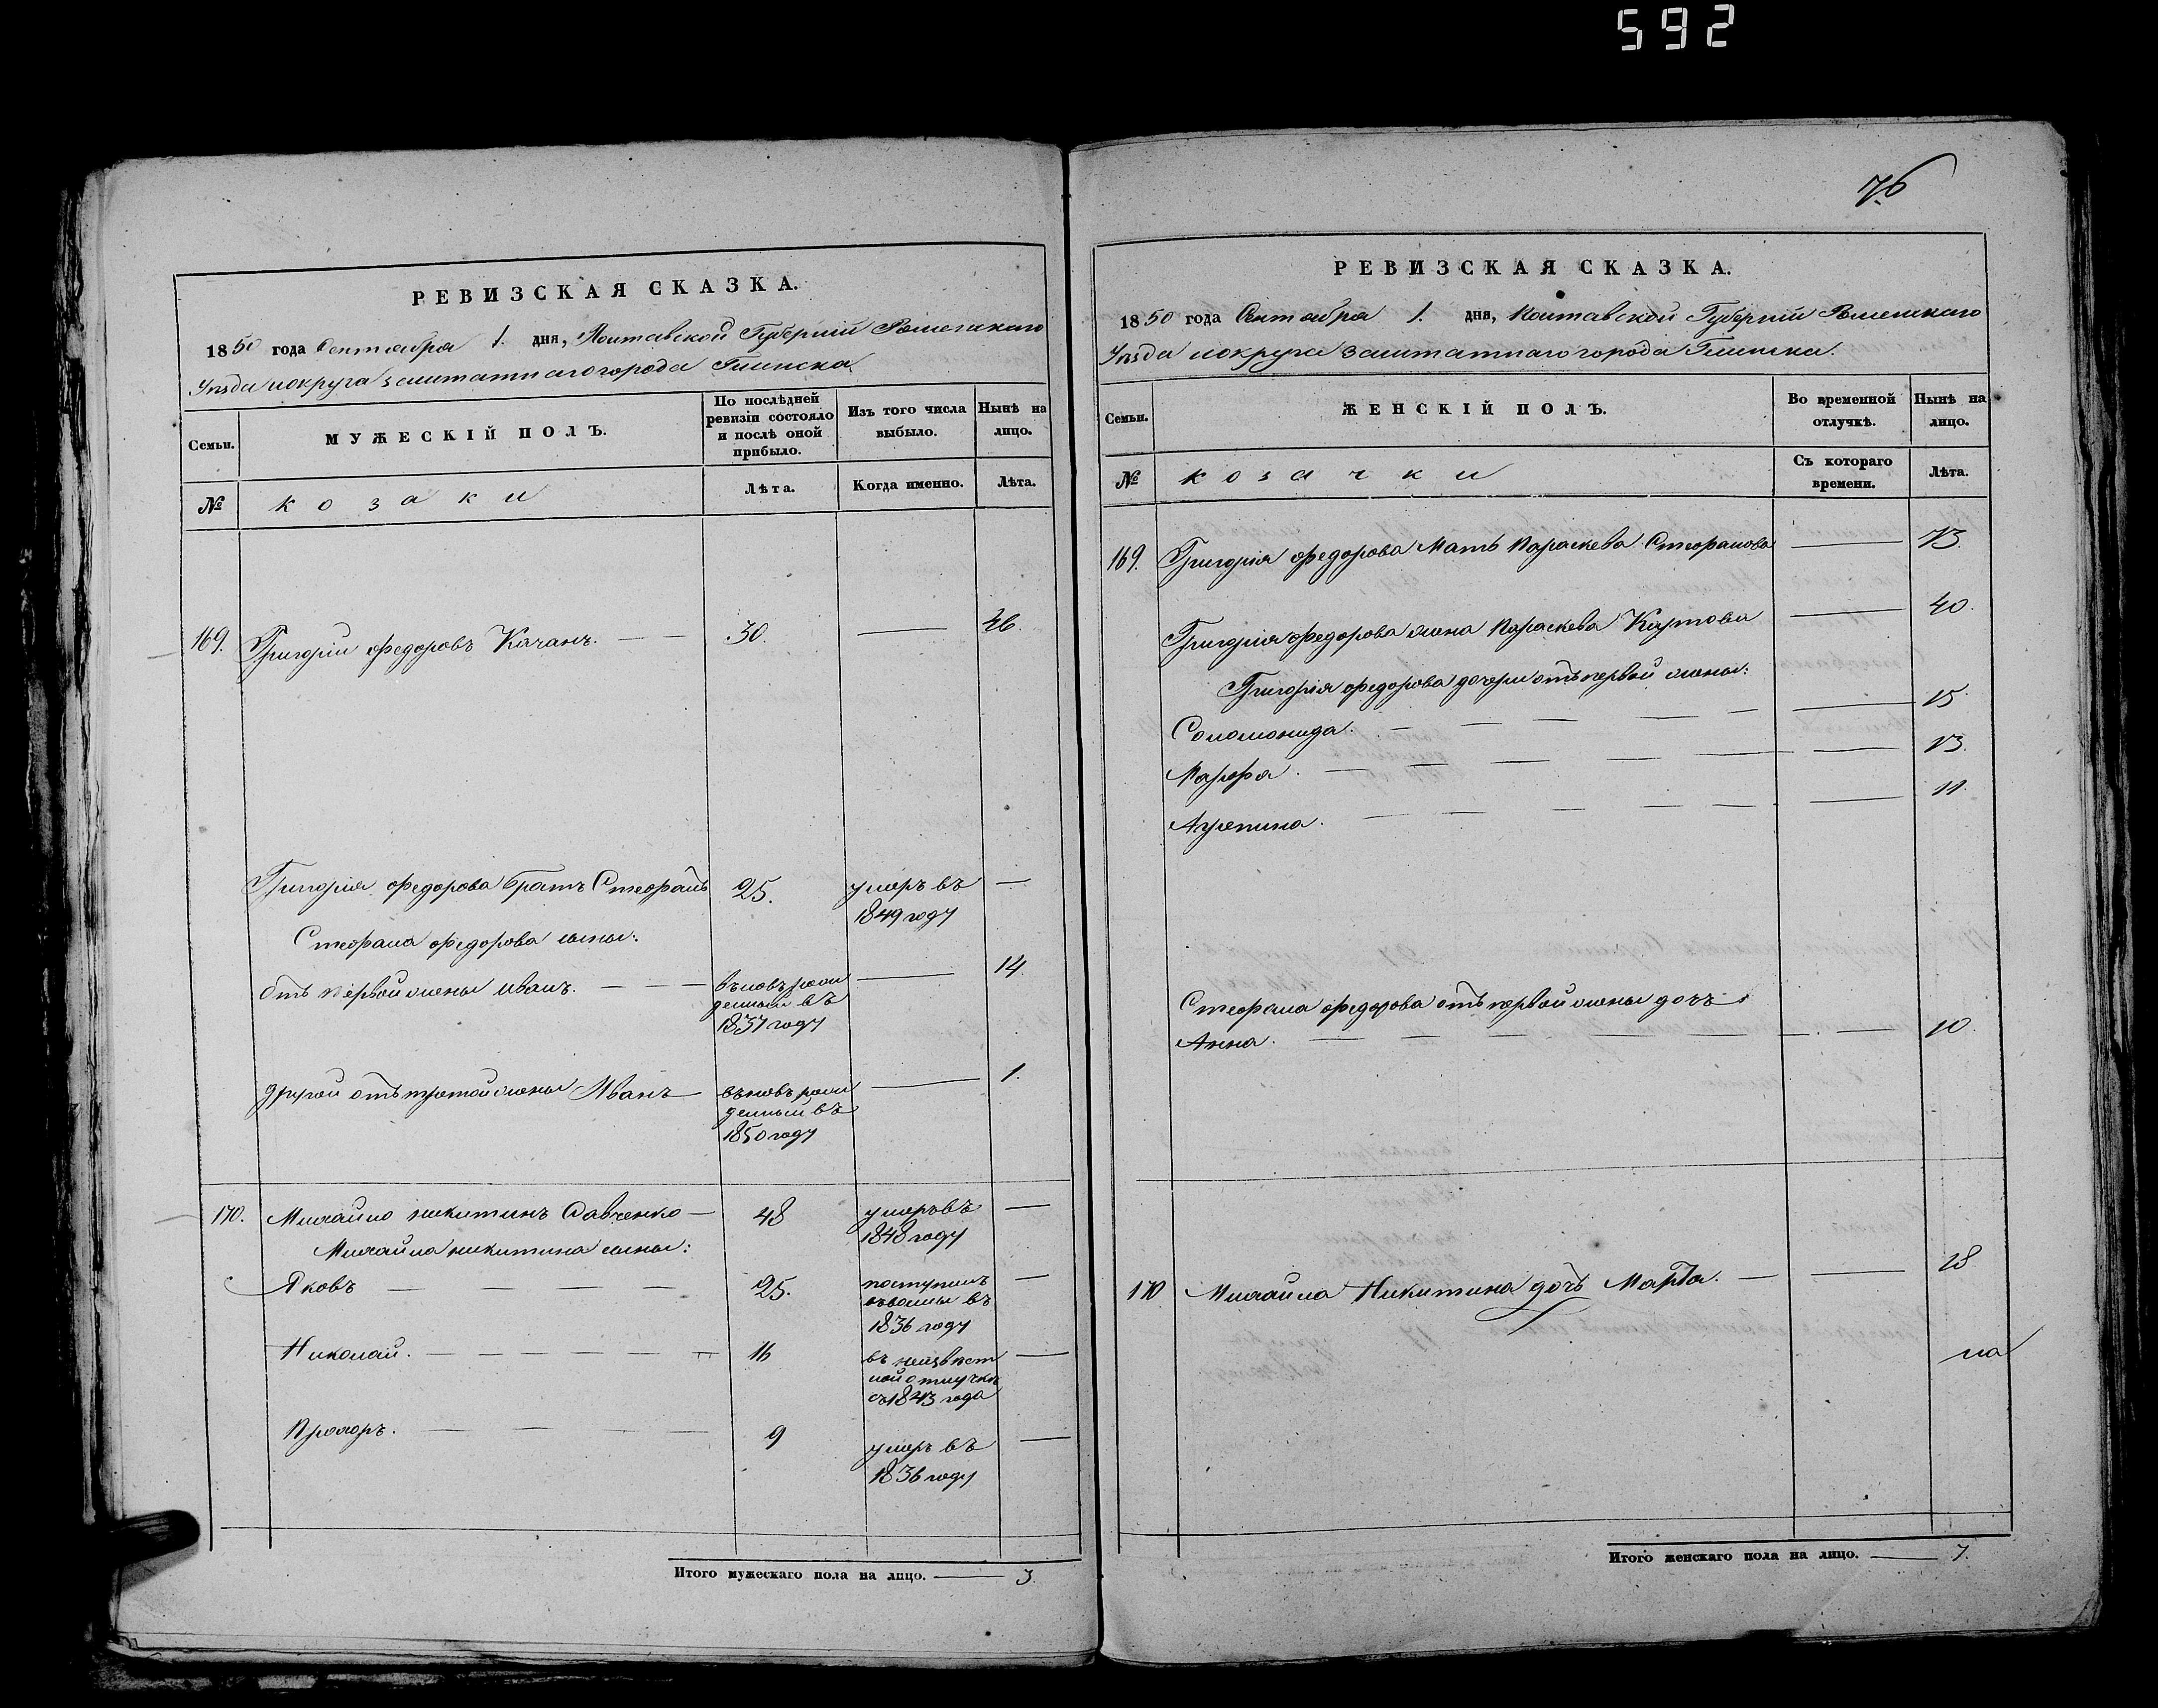 592
76
РЕВИЗСКАЯ СКАЗКА.
1850 года Сентября 1. дня, Полтавской Губерніи Роменскаго
Уѣзда іокруга заштатнаго города Глинска
Семьи.
МУЖЕСКІЙ ПОЛЪ.
По послѣдней ревизіи состояло и послѣ оной прибыло.
Изъ того числа выбыло.
Нынѣ на лицо.
№
козаки
Лѣта.
Когда именно.
Лѣта.
169. Григорій Федоровъ Качанъ. 30. 46.
Григорія Федорова братъ Стефанъ 25. умеръ въ — 
1849 году
Стефана Федорова сыны:
Отъ первой жены Иванъ. вновь рож 14.
денный въ
1837 году
другой отъ третой жены Иванъ вновь рож 1.
денный въ
1850 году
170. Михайло Никитинъ Савченко — 48 умеръ въ —
1848 году
Михайла Никитина сыны:
Яковъ 25. поступилъ —
1836 году
Николай. 16 въ неизвѣст —
ной отлучкѣ
съ 1843 года
Прохоръ. 9 умеръ въ —
1836 году
Итого мужескаго пола на лицо. — 3.
РЕВИЗСКАЯ СКАЗКА.
1850 года Сентября 1. дня, Полтавской Губерніи Роменскаго
Уѣзда іокруга заштатнаго города Глинска.
Семьи.
ЖЕНСКІЙ ПОЛЪ.
Во временной отлучкѣ.
Нынѣ на лицо.
№
козачки
Съ котораго времени.
Лѣта.
169. Григорія Федорова Мать Параскева Стефанова — 73.
Григорія Федорова жена Параскева Карпова — 40.
Григорія Федорова дочери отъ первой жены:
Соломонида. 15
Марфа. 13.
Агрепина. 11.
Стефана Федорова отъ первой жены дочь
Анна. 10.
170 Михайла Никитина дочь Марfа. — 18
Итого женскаго пола на лицо. — 7.